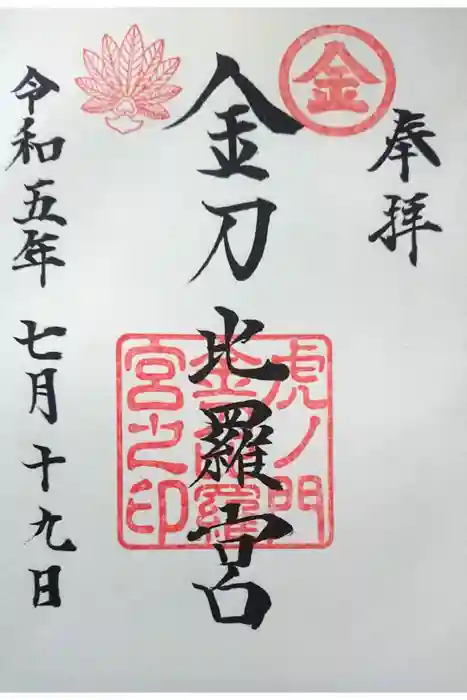 奉拝
金
金刀比羅宮
虎ノ門
金刀比羅
宮之印
令和五年 七月十九日